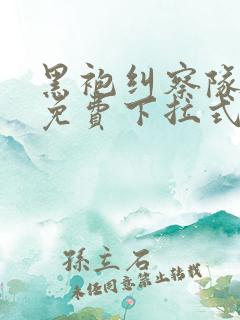 黑袍纠察队
免費下拉式
孫立石
未经同意禁止转载